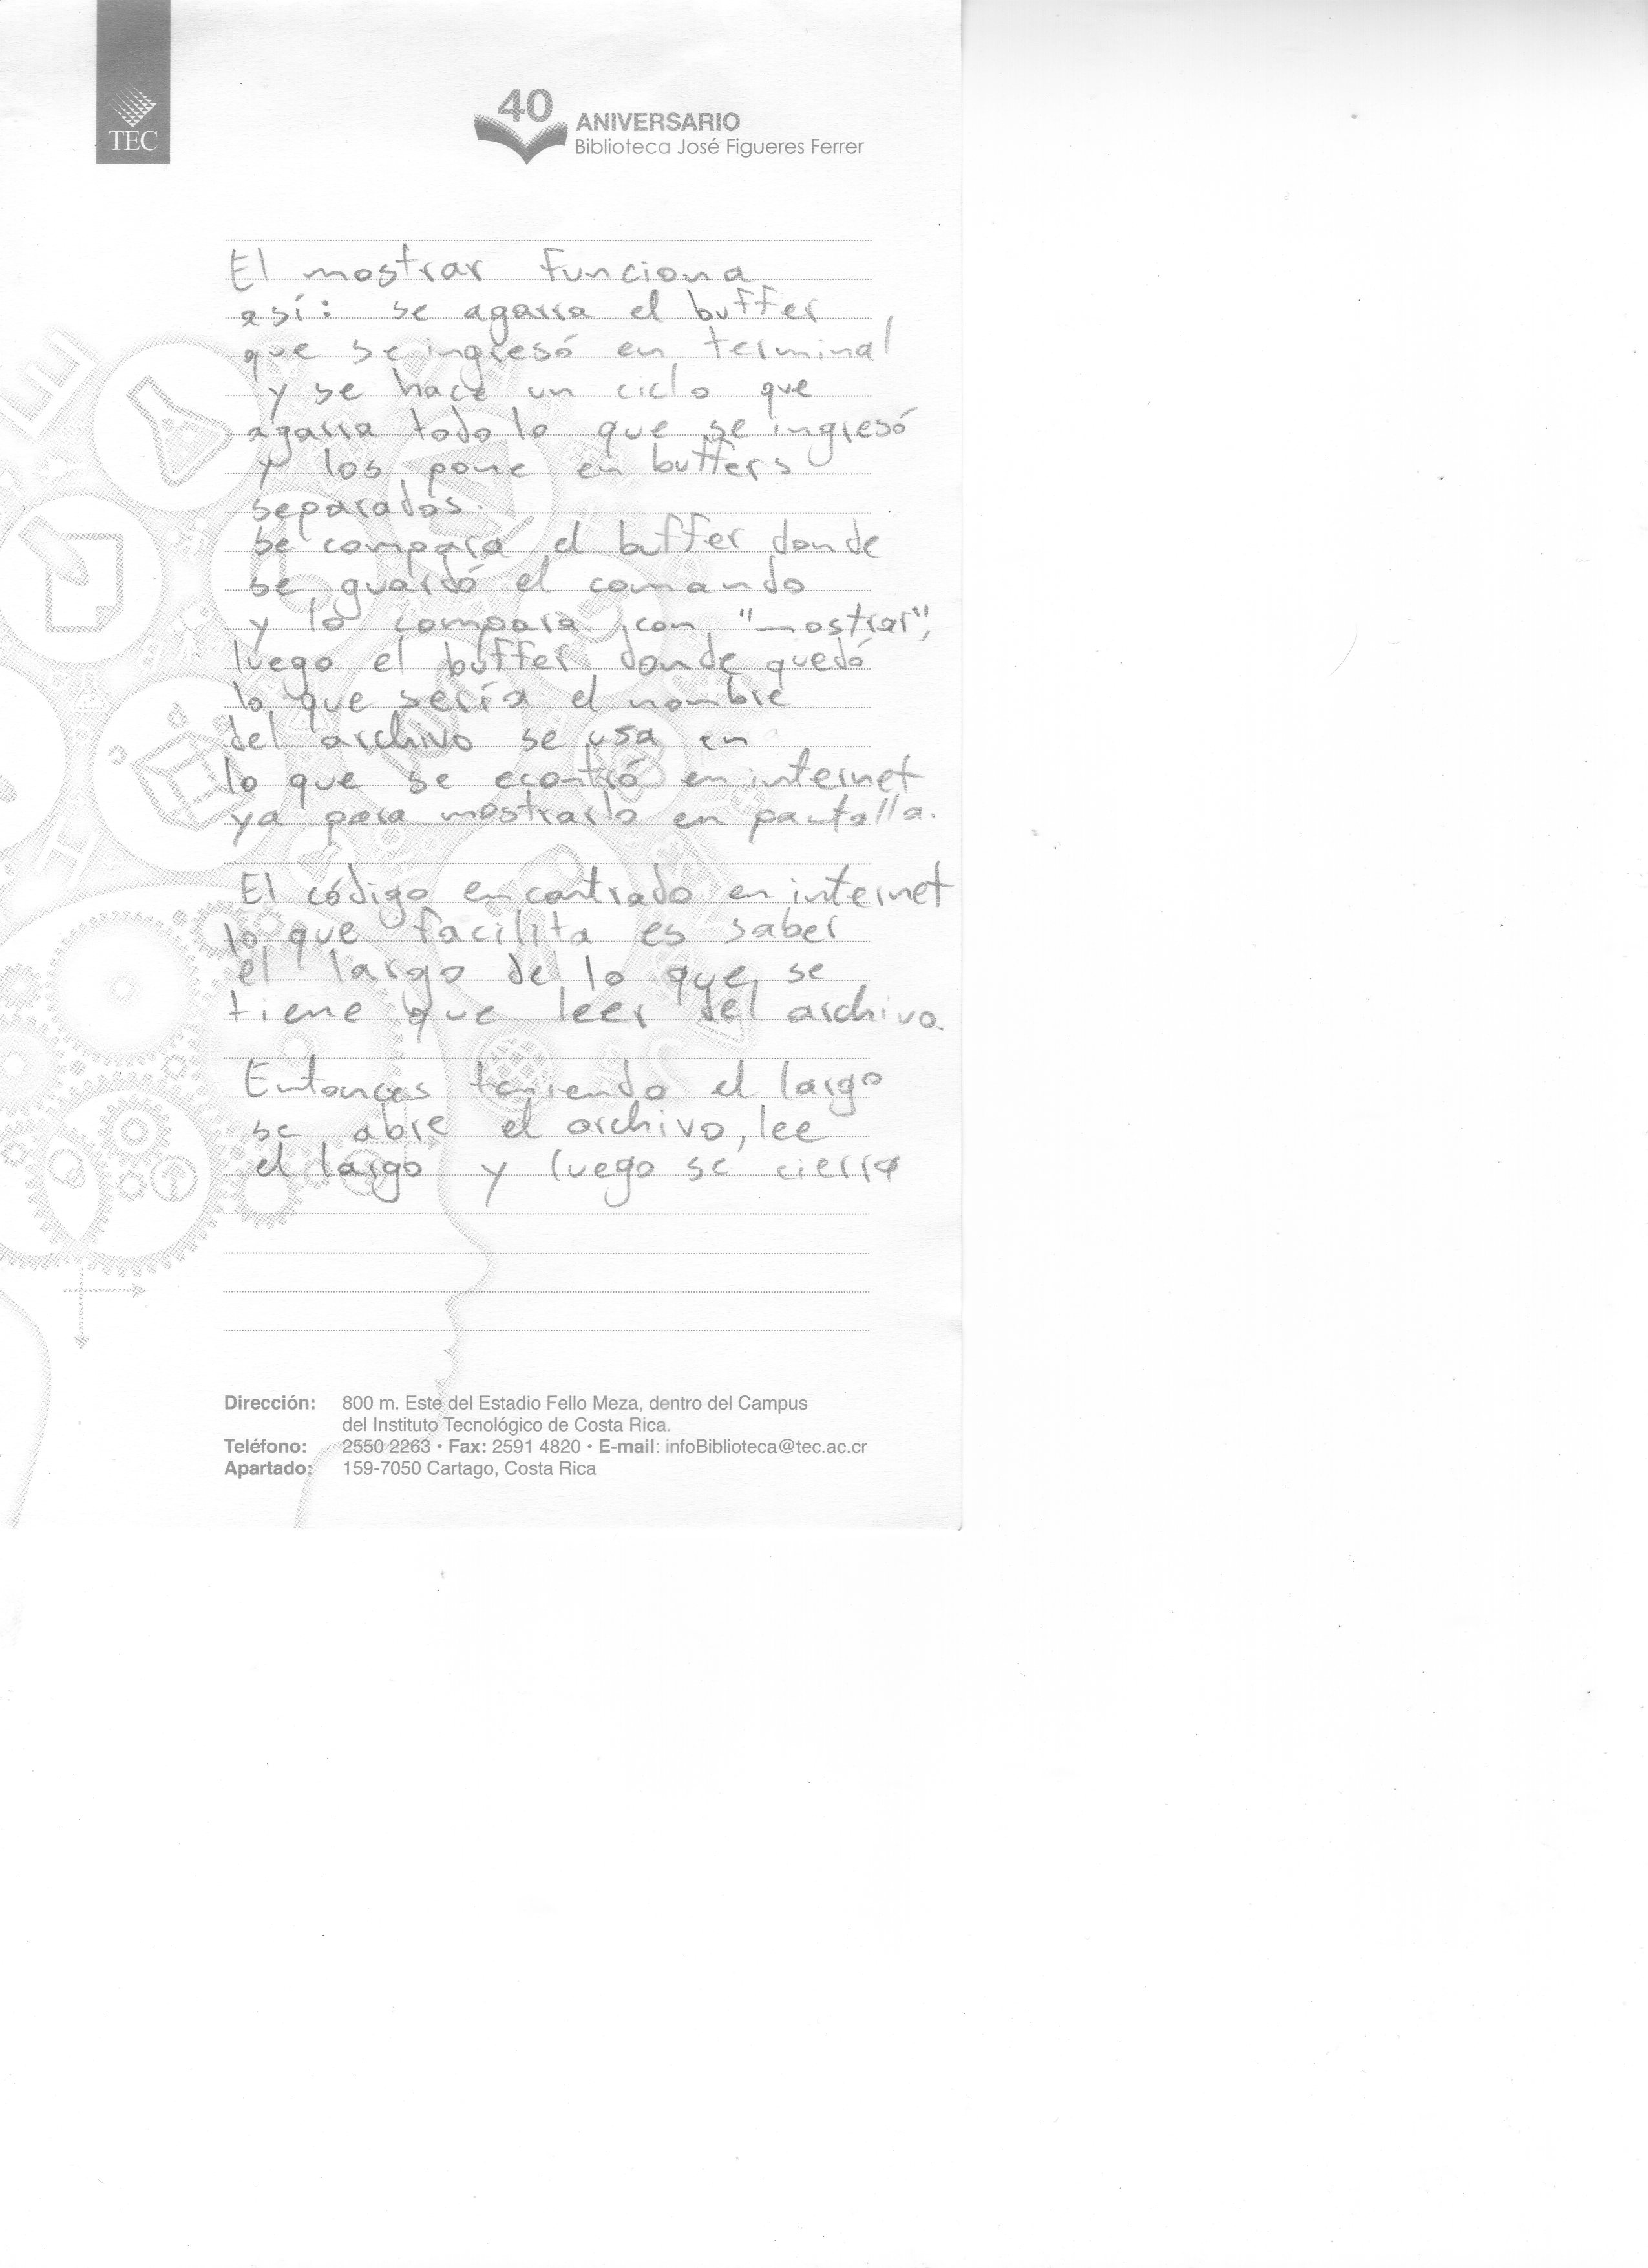 TEC
40
ANIVERSARIO
Biblioteca José Figueres Ferrer
El mostrar funciona
así: se agarra el buffer
que se ingresó en terminal
y se hace un ciclo que
agarra todo lo que se ingresó
y los pone en buffers
separados.
Se compara el buffer donde
se guardó el comando
y lo compara con "mostrar",
luego el buffer donde quedó
lo que sería el nombre
del archivo se usa en
lo que se econtró en internet
ya para mostrarlo en pantalla.
El código encontrado en internet
lo que facilita es saber
el largo de lo que se
tiene que leer del archivo.
Entonces teniendo el largo
se abre el archivo, lee
el largo y luego se cierra
Dirección: 800 m. Este del Estadio Fello Meza, dentro del Campus
del Instituto Tecnológico de Costa Rica.
Teléfono: 2550 2263 • Fax: 2591 4820 • E-mail: infoBiblioteca@tec.ac.cr
Apartado: 159-7050 Cartago, Costa Rica